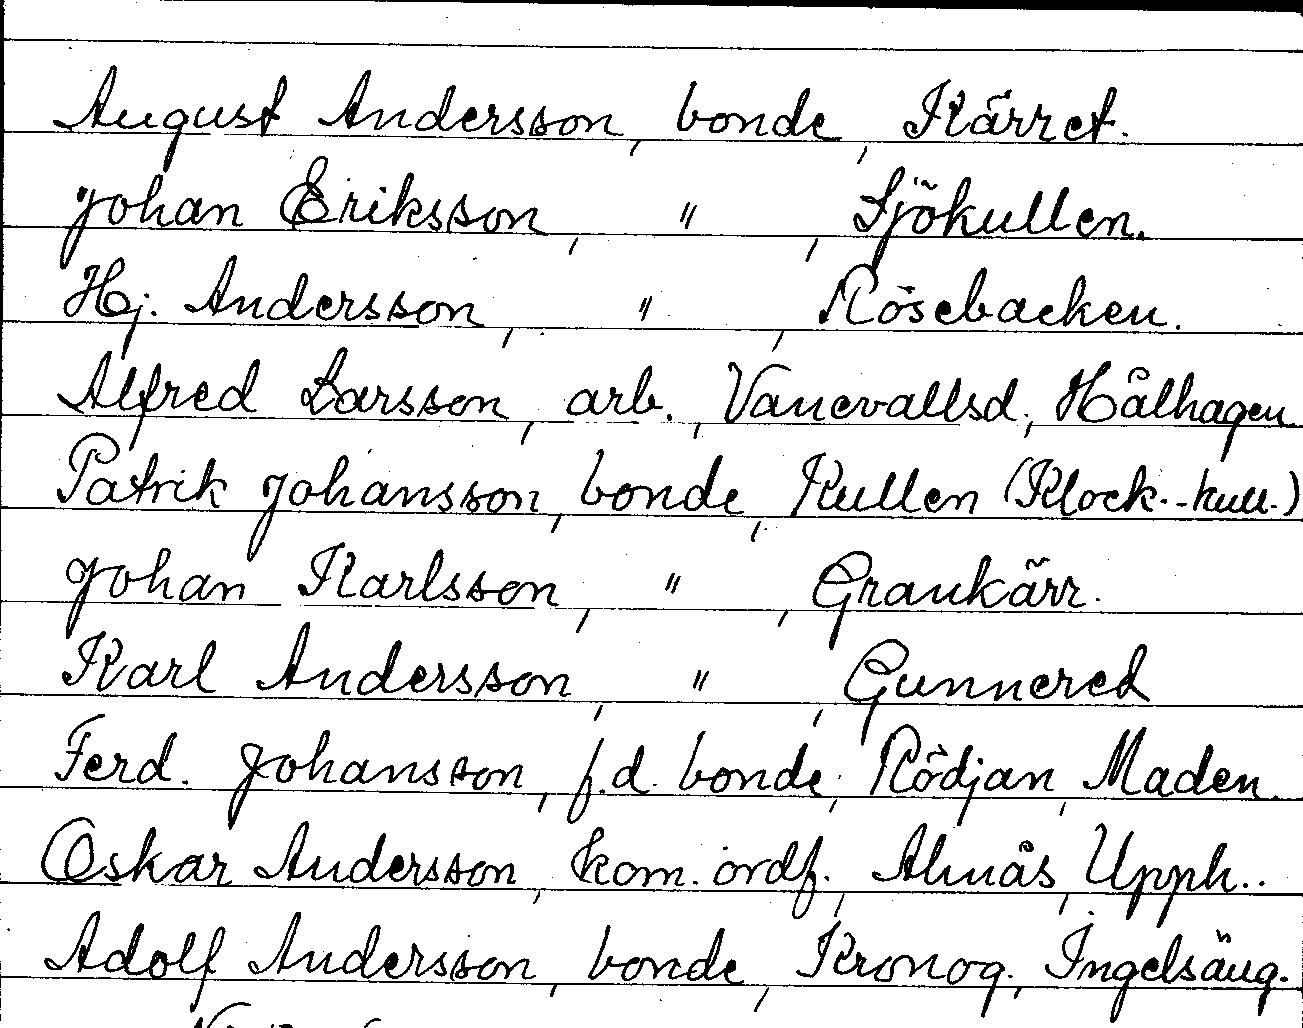 August Andersson, bonde, Kärret.
Johan Eriksson, " , Sjökullen.
Hj. Andersson, " , Rösebacken.
Alfred Larsson, arb., Vanevallsd., Hålhagen
Patrik Johansson, bonde, Kullen (Klock.-kull.)
Johan Karlsson, " , Grankärr.
Karl Andersson, " , Gunnered
Ferd. Johansson, f.d. bonde, Rödjan, Maden.
Oskar Andersson, kom. ordf., Almås, Upph..
Adolf Andersson, bonde, Kronog., Ingelsäng.